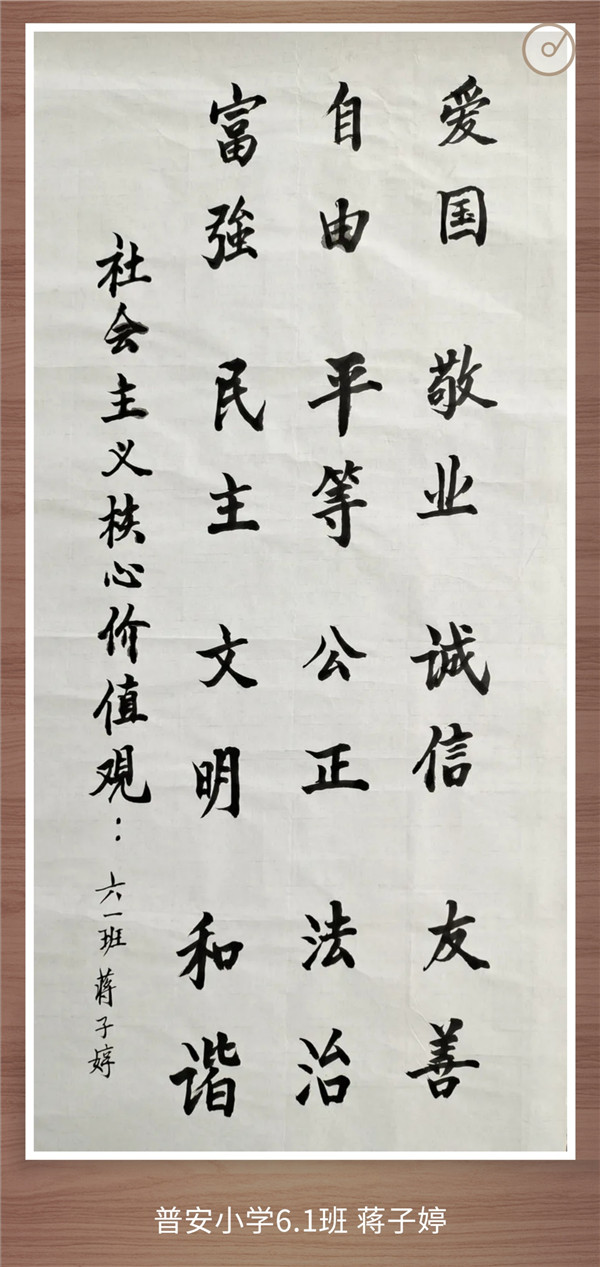 社会主义核心价值观：六一班 蒋子婷
富強 民主 文明 和谐
自由 平等 公正 法治
爱国 敬业 诚信 友善
普安小学6.1班 蒋子婷